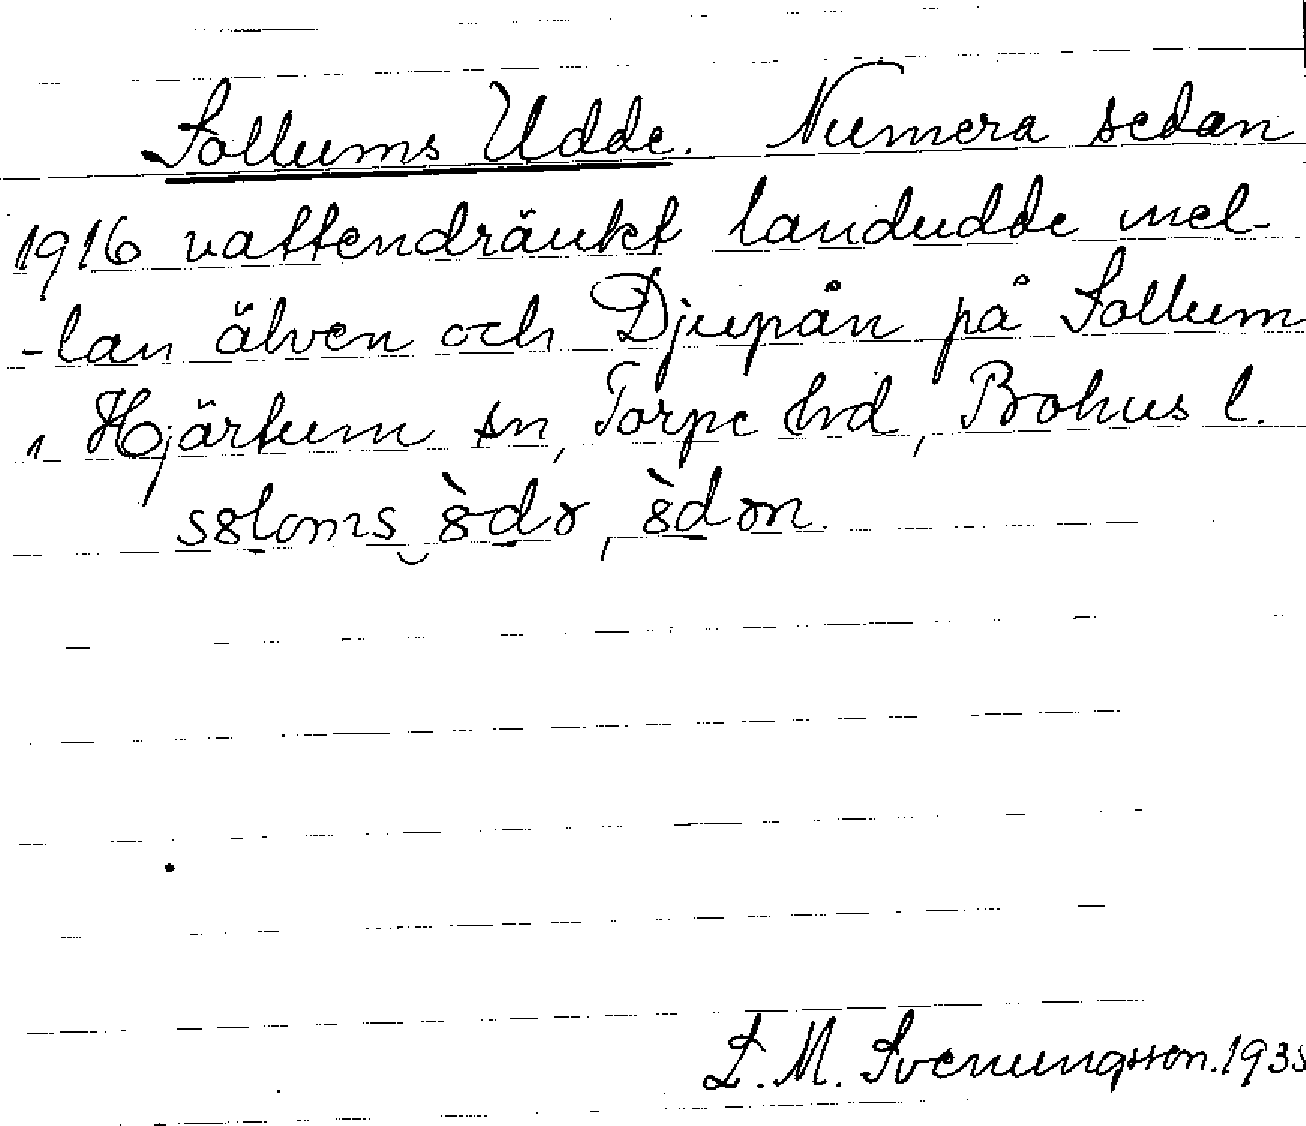 Sollums Udde. Numera sedan
1916 vattendränkt landudde mel-
-lan älven och Djupån på Sollum
i Hjärtum sn, Torpe hd, Bohus l.
L. M. Svenungsson. 1935